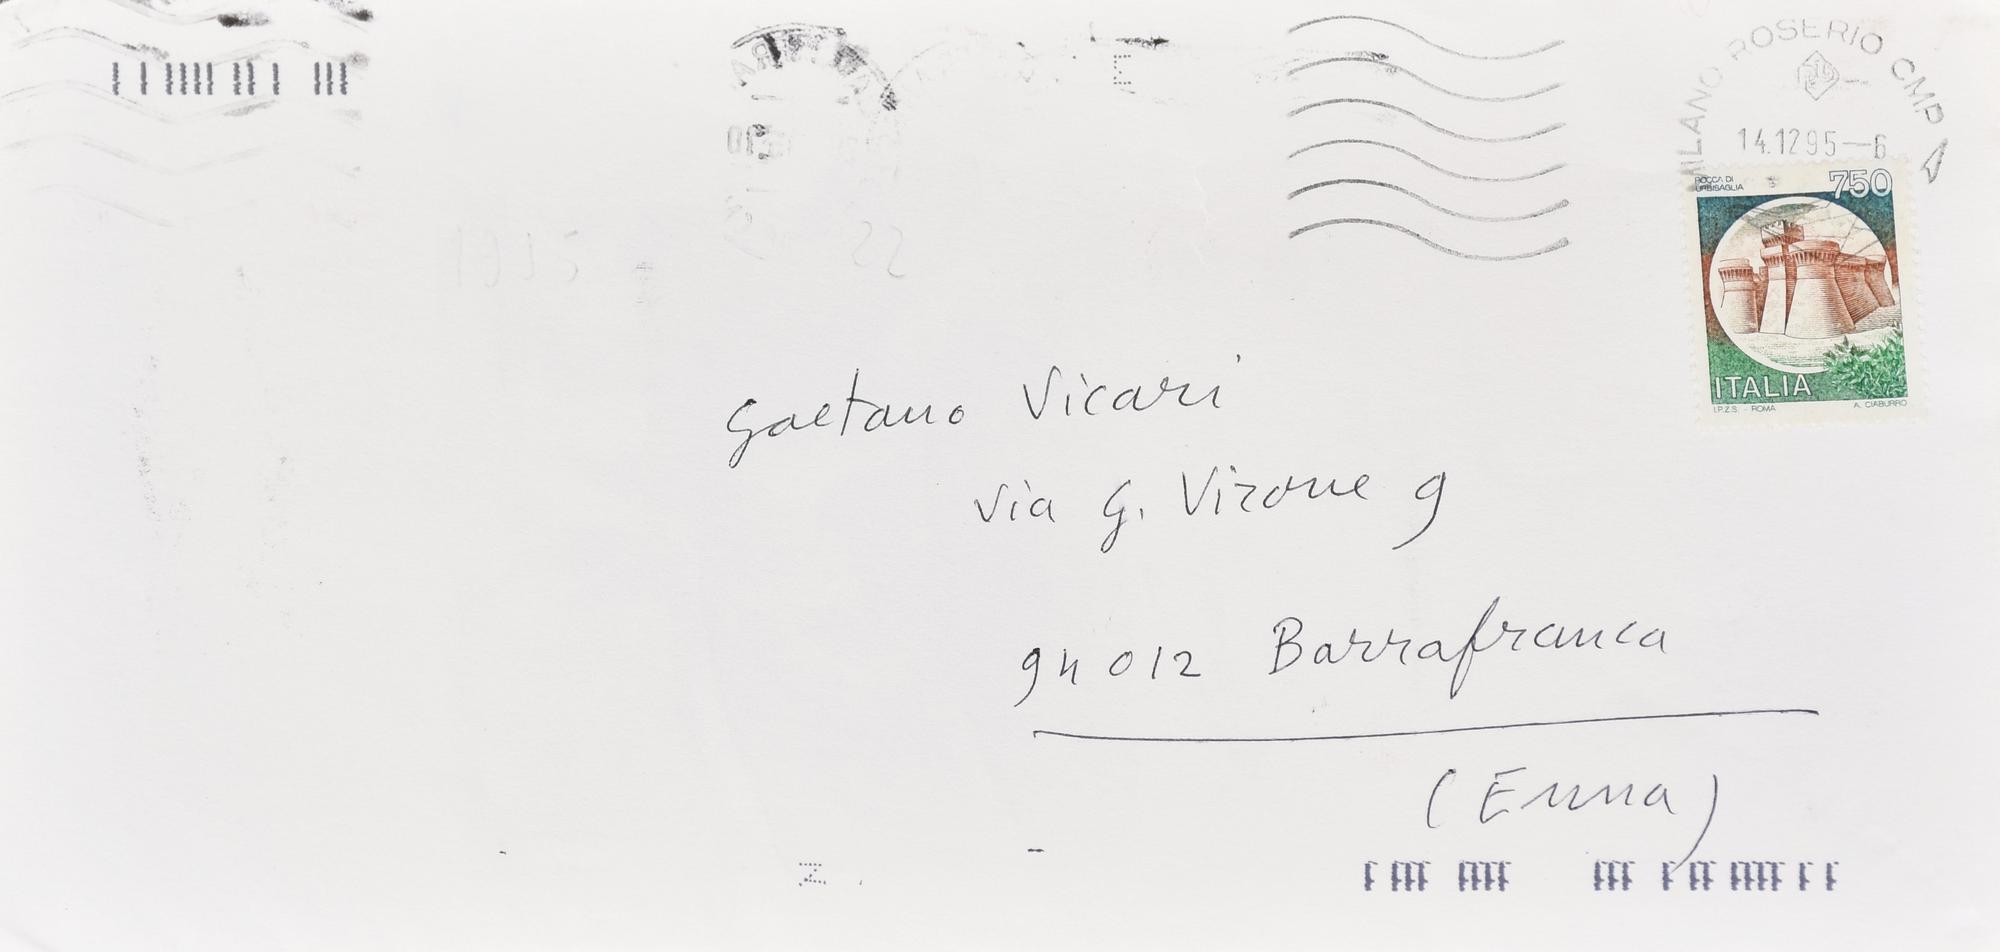 MILANO ROSERIO CMP
14.12 95-6
ROCCA DI
URBISAGLIA
750
ITALIA
I.P.Z.S. - ROMA A. CIABURRO
Gaetano Vicari
Via G. Virone 9
94012 Barrafranca
(Enna)